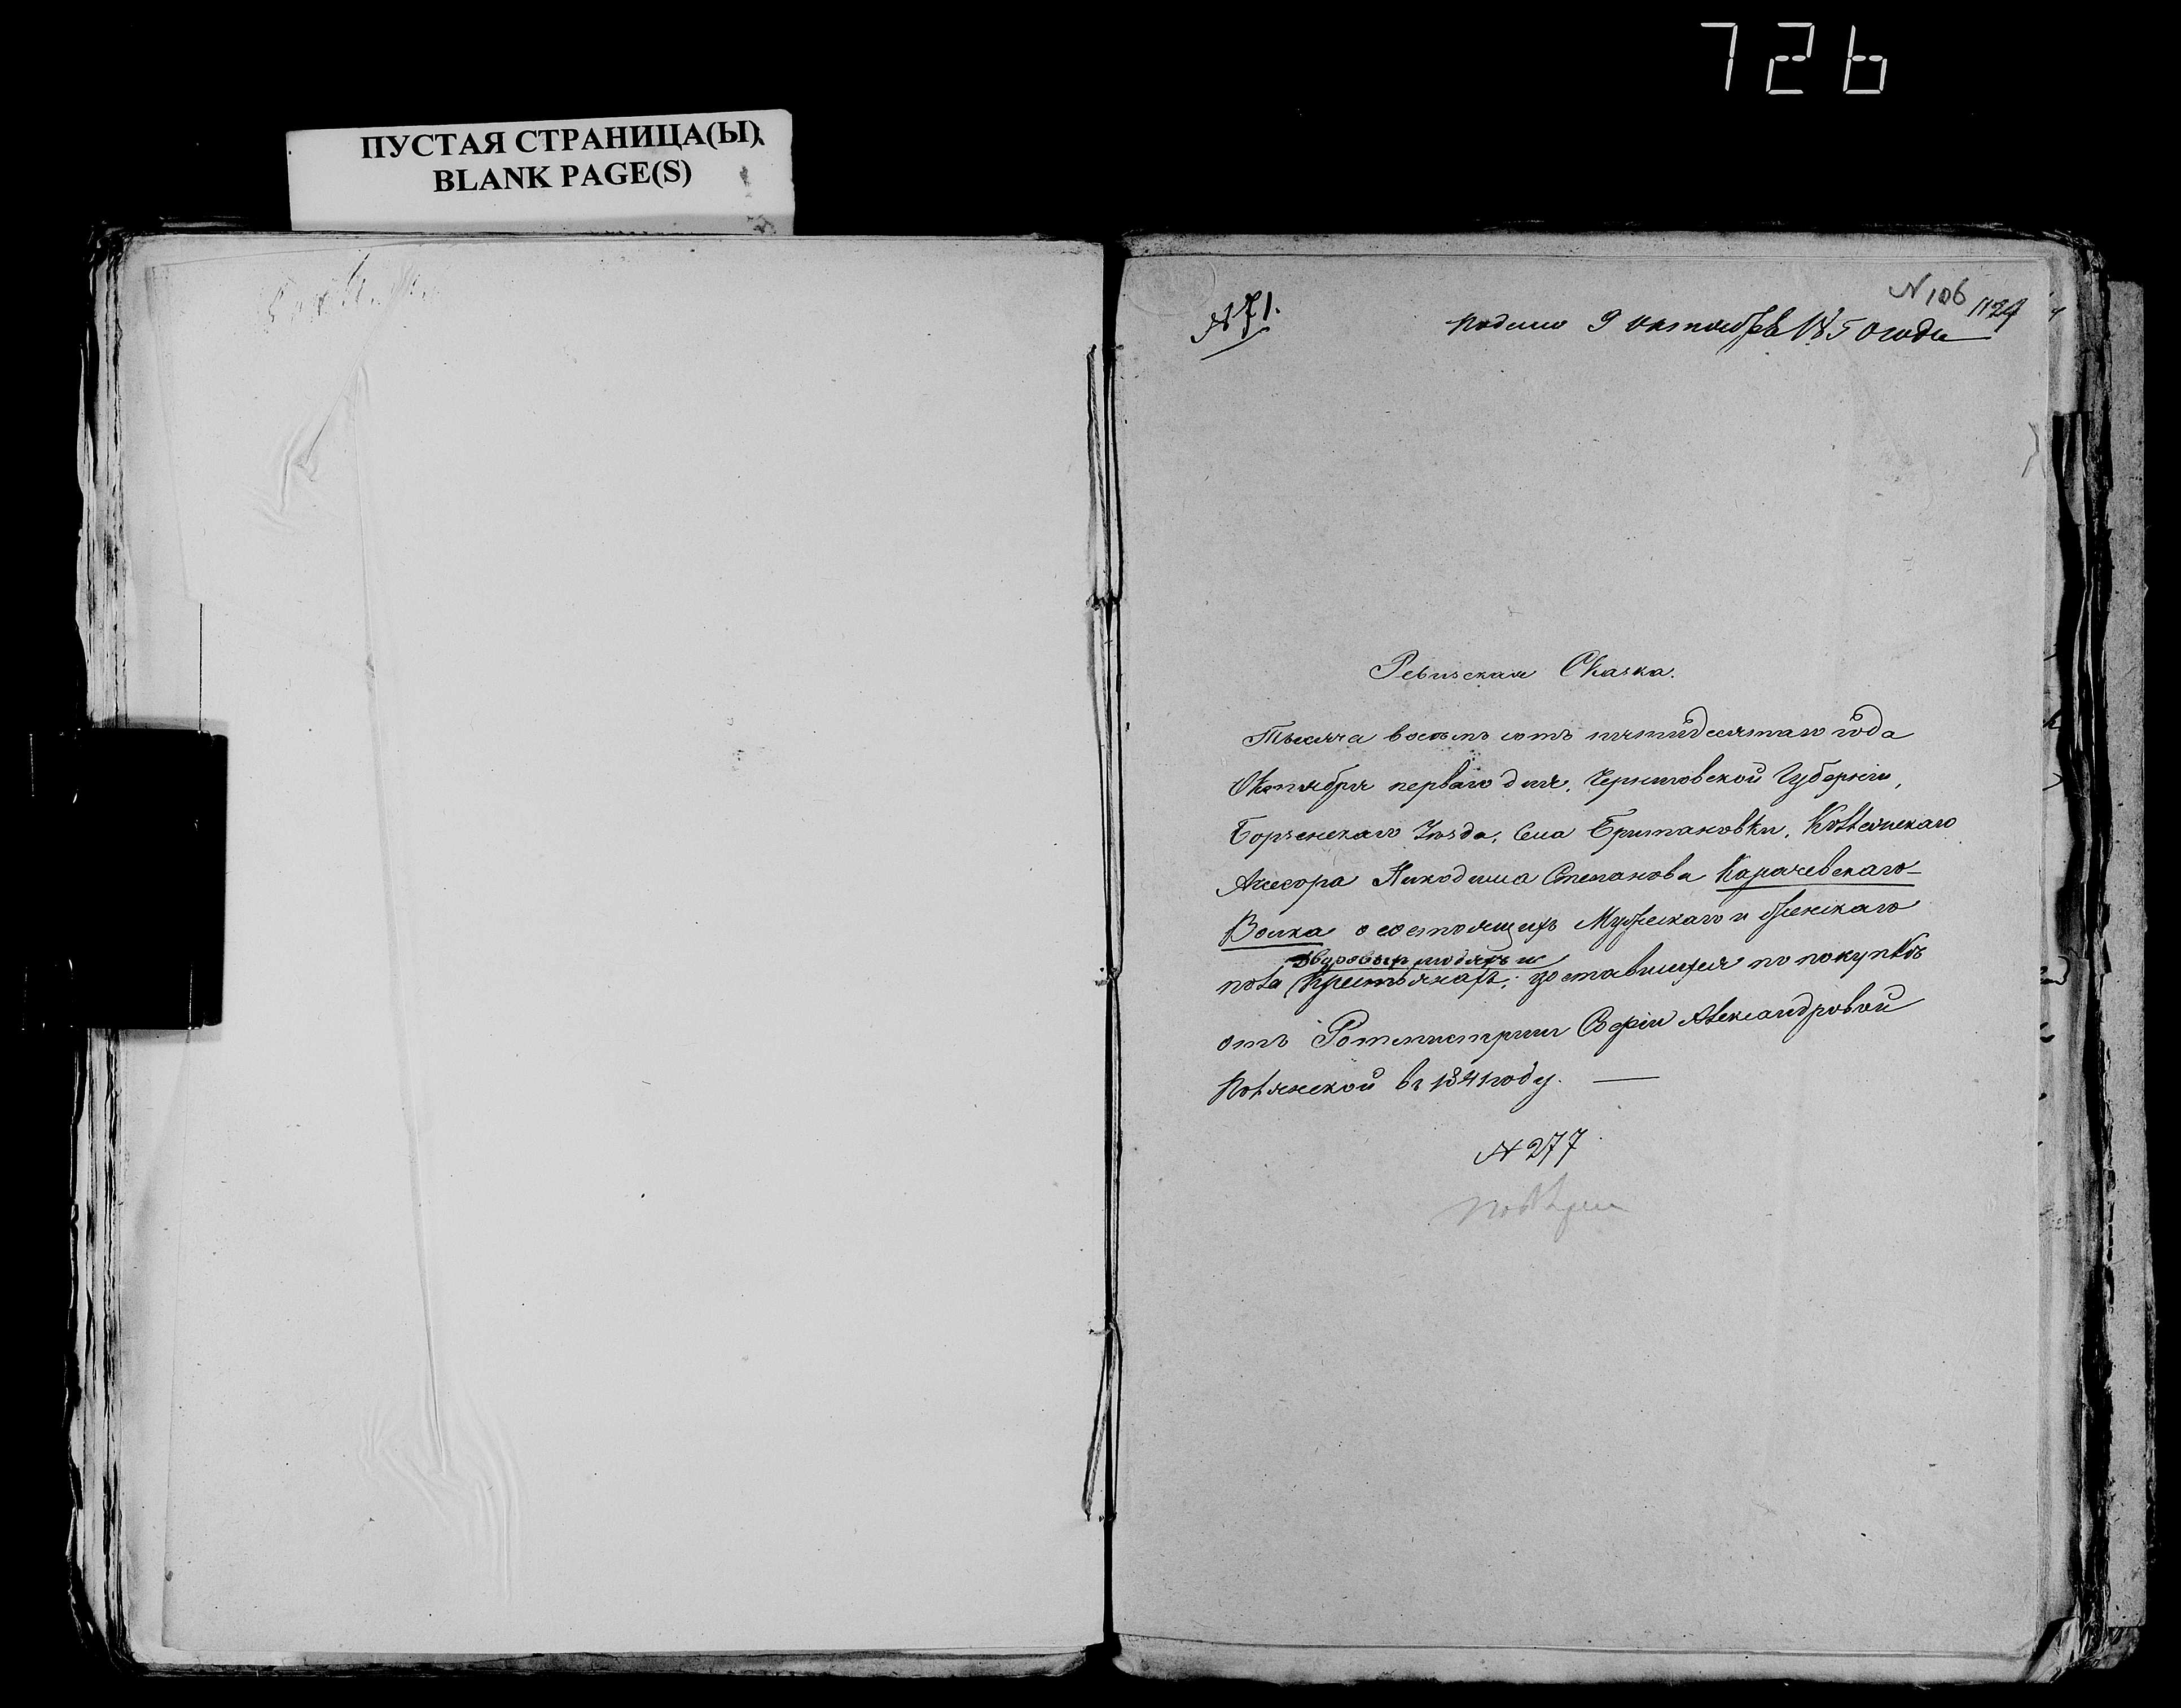 726
ПУСТАЯ СТРАНИЦА(Ы)
BLANK PAGE(S)
№ 106
№ 71.
1124
Подана 9 октября 1850 года
Ревизская Сказка.
Тысяча восемь сотъ пятидесятаго года
Октября перваго дня, Черниговской Губерніи,
Борзенскаго Уѣзда, Села Британовки, Коллежскаго
Ассесора Никодима Степанова Карачевскаго-
Волка о состоящихъ Мужескаго и женскаго
дворовыхъ людяхъ и
пола Крестьянахъ, доставшихся по покупкѣ
отъ Ротмистрши Софіи Александровой
въ 1841 году. —
№ 277